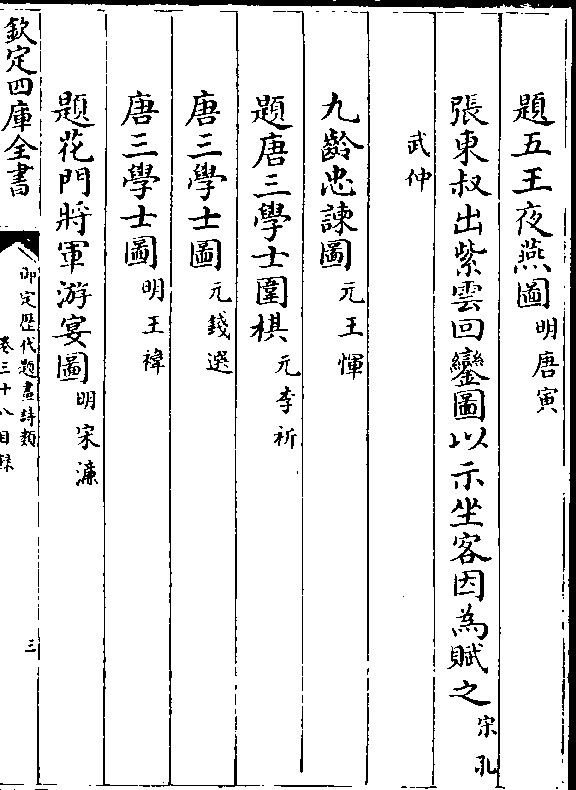 題五王夜燕圖 明唐寅
張東叔出紫雲回鑾圖以示坐客因為賦之 宋孔
武仲
九齡忠諫圖 元王惲
題唐三學士圍棋 元李祈
唐三學士圖 元錢選
唐三學士圖 明王褘
題花門將軍游宴圖 明宋濂
欽定四庫全書
御定歴代題畫詩類
卷三十八目録
三